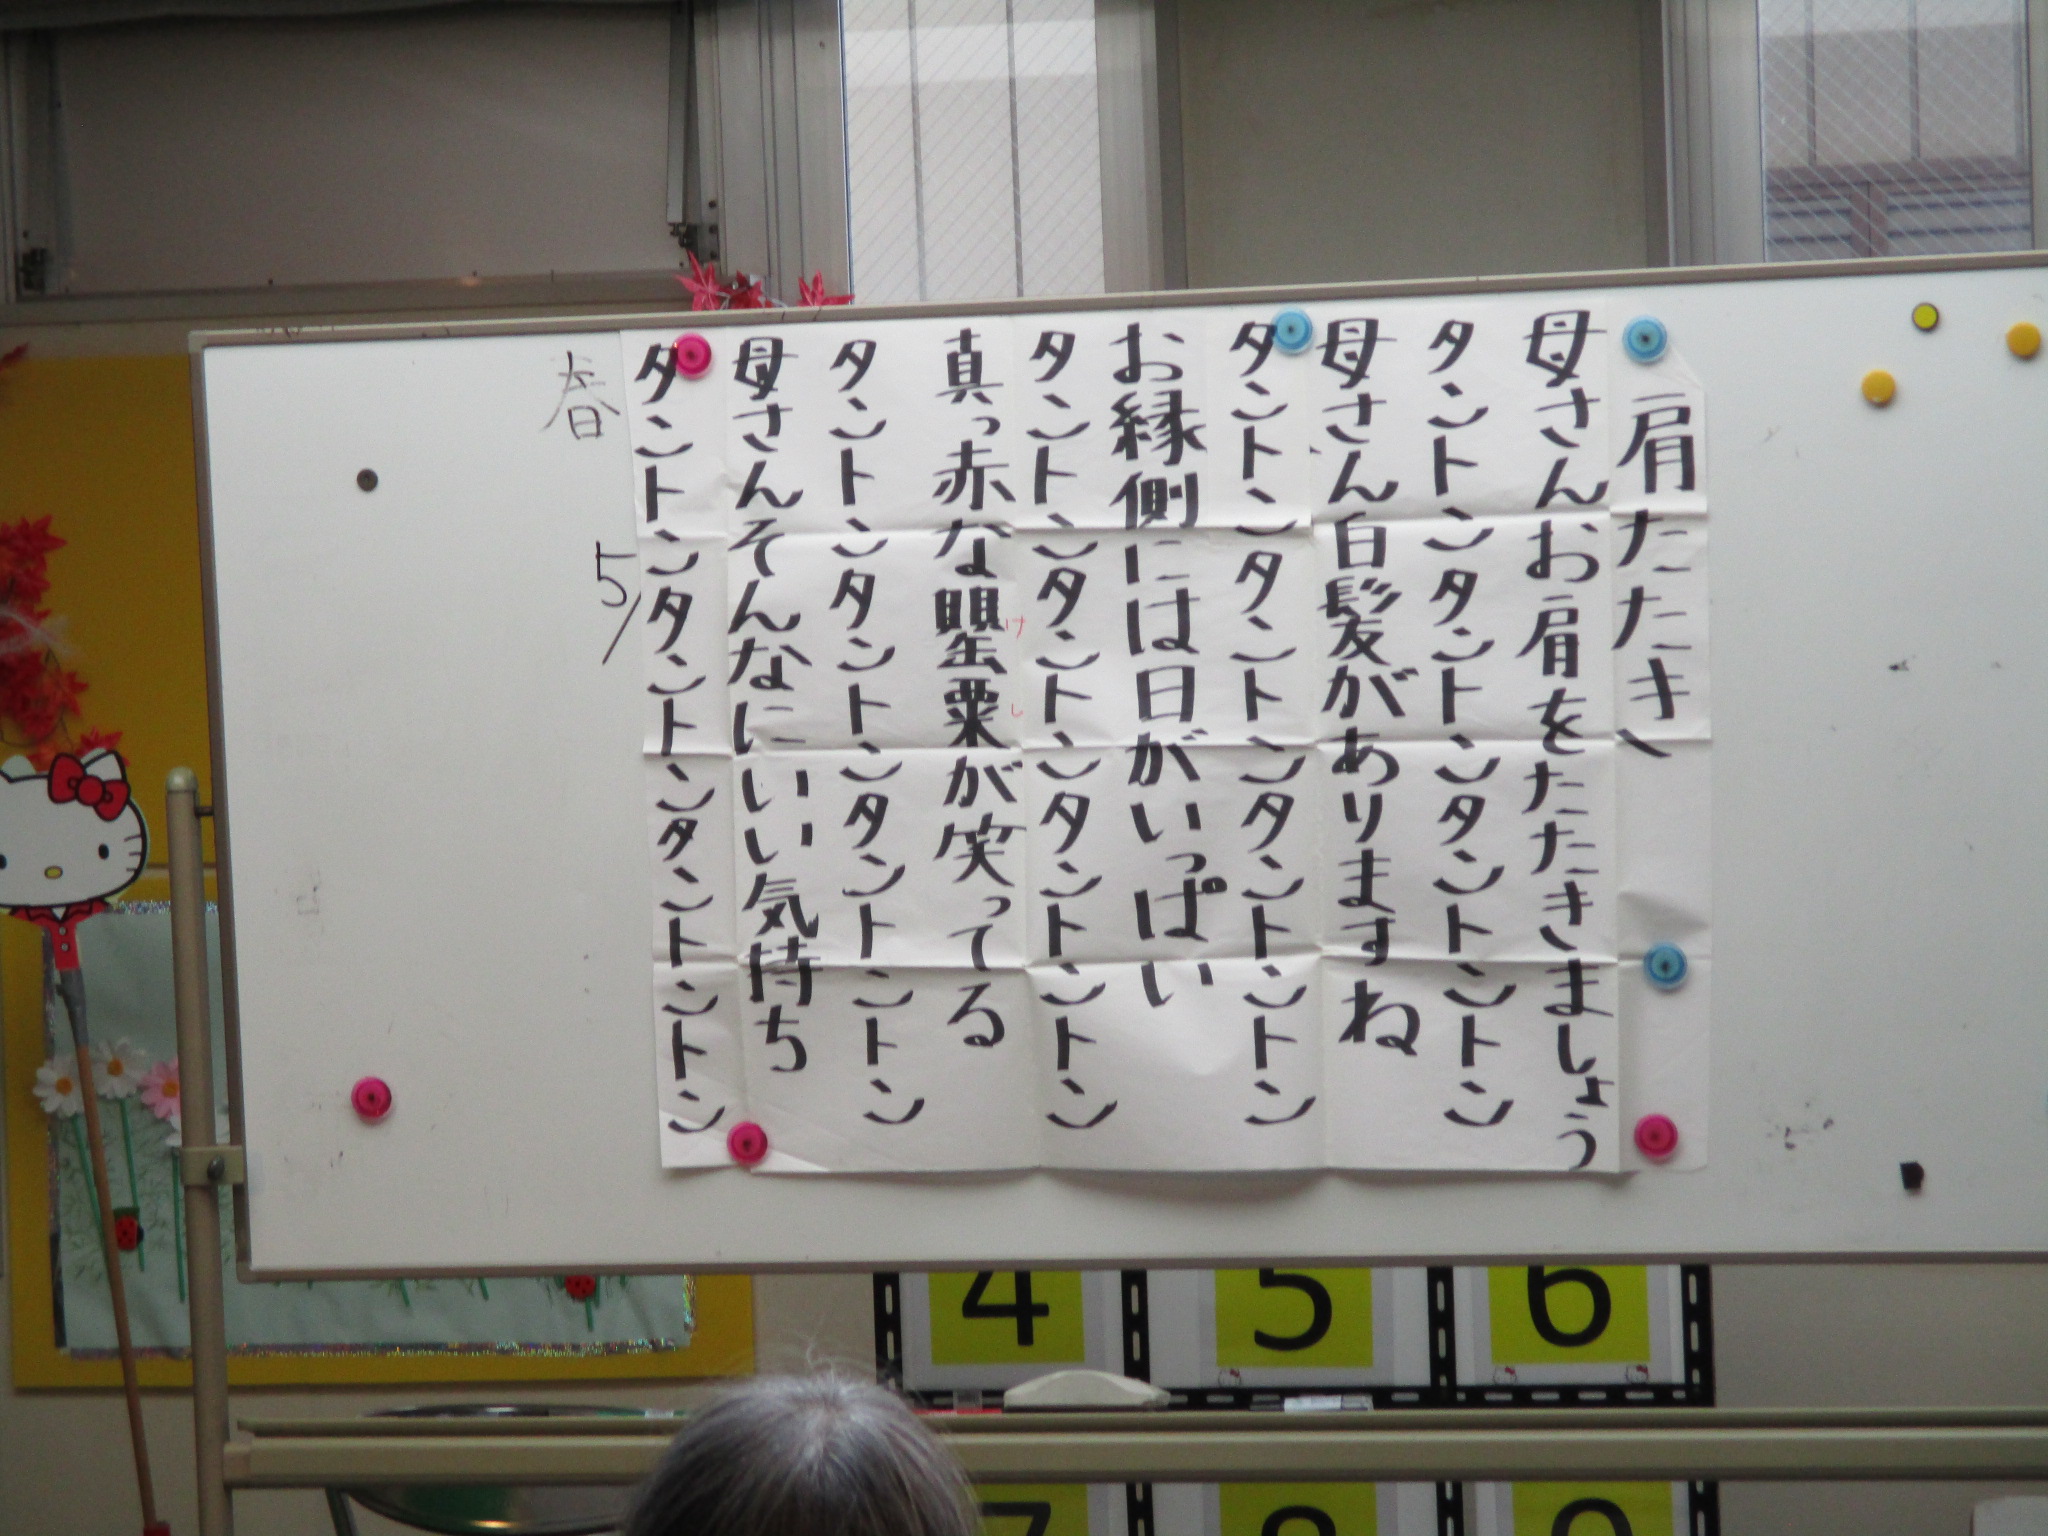 肩たたき
母さんお肩をたたきましょう
タントンタントンタントントン
母さん白髪がありますね
タントンタントンタントントン
お縁側には日がいっぱい
タントンタントンタントントン
真っ赤な罌粟が笑ってる
けし
タントンタントンタントントン
母さんそんなにいい気持ち
タントンタントンタントントン
春 5/
4 5 6
7 8 9